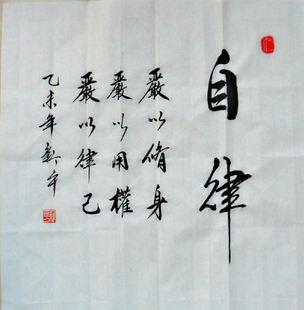 自律
嚴以脩身
嚴以用權
嚴以律己
乙未年